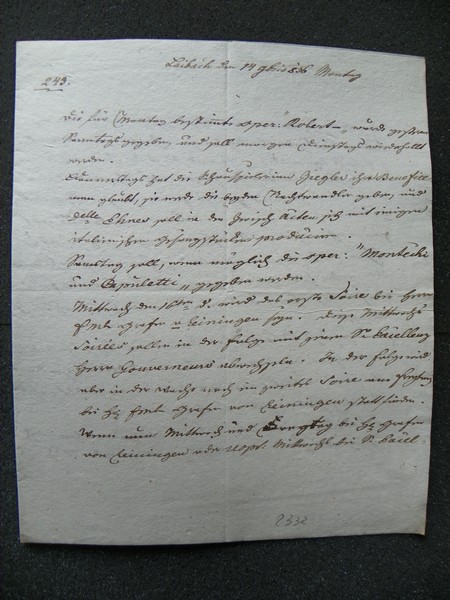 Laibach den 14 9bris 836 Montag
243.
Die für Montag bestimte Oper: "Robert", wurde gestern
Samstags gegeben, und soll morgen Dienstags wiederhollt
werden.
Donnerstags hat die Schauspielerinn Ziegler ihr Benefitt
man glaubt, sie werde die beyden Nachtwandler geben, und
delle Ehnes soll in den Zwisch Akten, sich mit einigen
italienischen Gesangstücken produciren.
Samstag soll, wenn möglich die Oper: "Montechi
und Capuletti" gegeben werden.
Mittwoch den 16ten d. wird das erste Soiré bei Herrn
Grafen v Leiningen seyn. Diese Mittwochs
Soirées sollen in der Folge mit jenen Sr Excellenz
Herrn Gouverneurs abwechseln. In der Folge wird
aber in der Woche noch ein zweites Soire am
bei Hr Grafen von Leiningen statt finden.
Wenn nun Mittwoch und Freytag bei Hr Grafen
von Leiningen oder Mittwochs bei Sr Excel-
2332